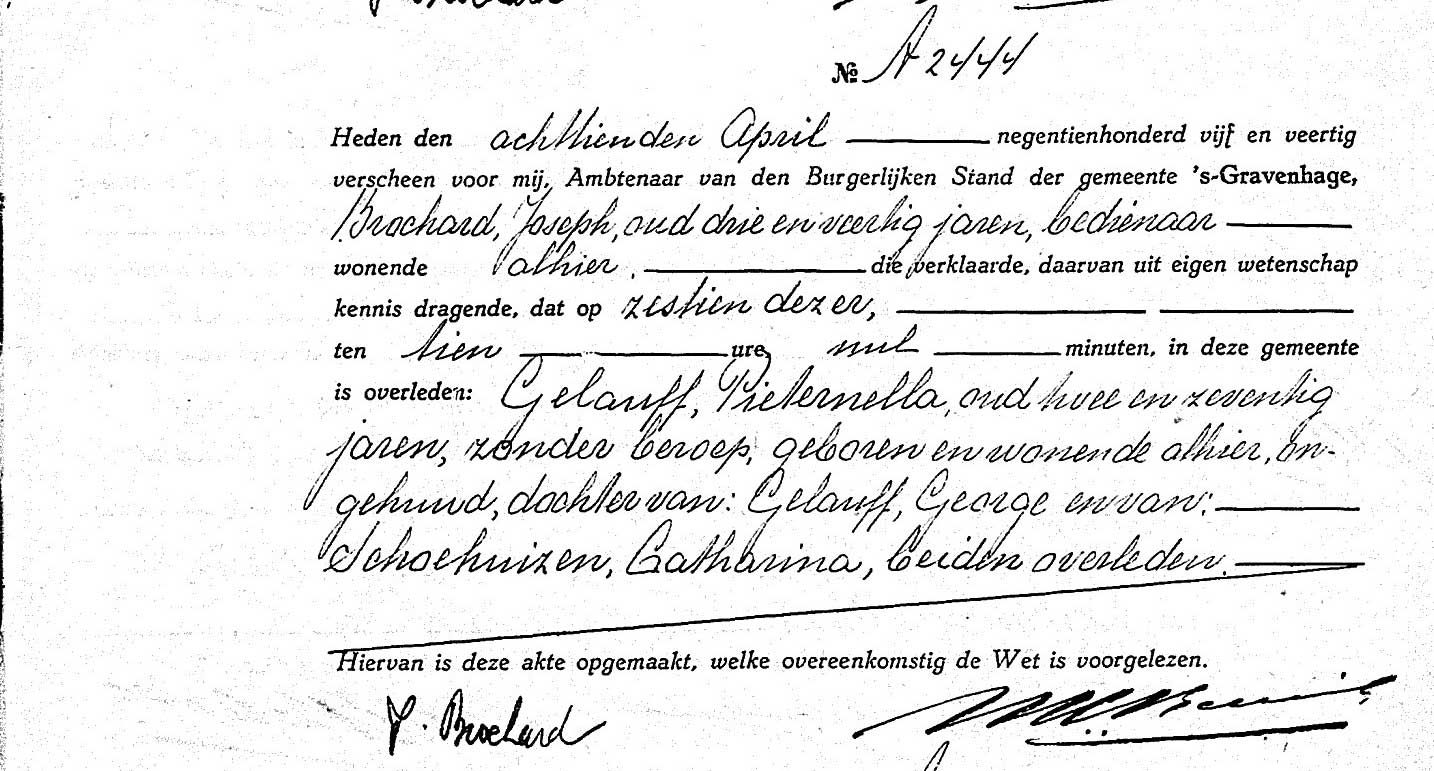 J. Brochard
№ A 2444
Heden den achttienden April negentienhonderd vijf en veertig
verscheen voor mij, Ambtenaar van den Burgerlijken Stand der gemeente 's-Gravenhage,
Brochard, Joseph, oud drie en veertig jaren, bedienaar
wonende alhier, die verklaarde, daarvan uit eigen wetenschap
kennis dragende, dat op zestien dezer,
ten tien ure, nul minuten, in deze gemeente
is overleden: Gelauff, Pieternella, oud twee en zeventig
jaren, zonder beroep, geboren en wonende alhier, on-
gehuwd, dochter van: Gelauff, George en van:
Schoehuizen, Catharina, beiden overleden.
Hiervan is deze akte opgemaakt, welke overeenkomstig de Wet is voorgelezen.
J. Brochard